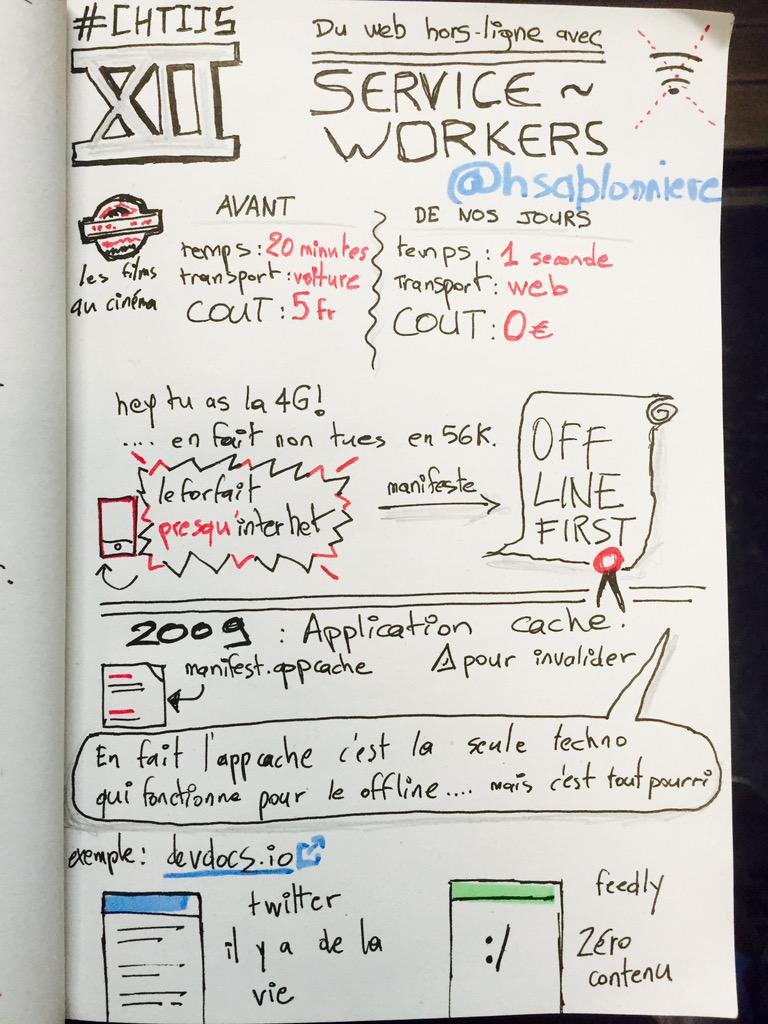 #CHTIJS
XII
Du web hors-ligne avec
SERVICE ~
WORKERS
@hsablonniere
les films
au cinéma
AVANT
temps : 20 minutes
transport : voiture
COUT : 5 fr
DE NOS JOURS
temps : 1 seconde
Transport : web
COUT : 0€
hey tu as la 4G!
.... en fait non tues en 56K.
le forfait
presqu'internet
manifeste
OFF
LINE
FIRST
2009 : Application cache.
manifest.appcache
⚠ pour invalider
En fait l'appcache c'est la seule techno
qui fonctionne pour le offline.... mais c'est tout pourri
exemple : devdocs.io
twitter
il y a de la
vie
:/
feedly
Zéro
contenu